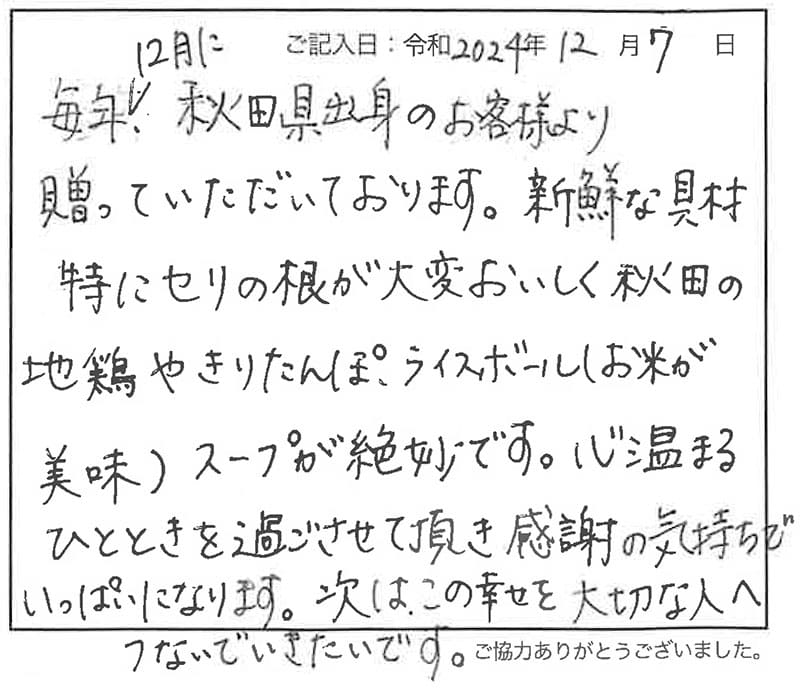 ご記入日：令和2024年12月7日
12月に
毎年！秋田県出身のお客様より
贈っていただいております。新鮮な具材
特にセリの根が大変おいしく秋田の
地鶏やきりたんぽ、ライスボール(お米が
美味)スープが絶妙です。心温まる
ひとときを過ごさせて頂き感謝の気持ちで
いっぱいになります。次は、この幸せを大切な人へ
つないでいきたいです。
ご協力ありがとうございました。